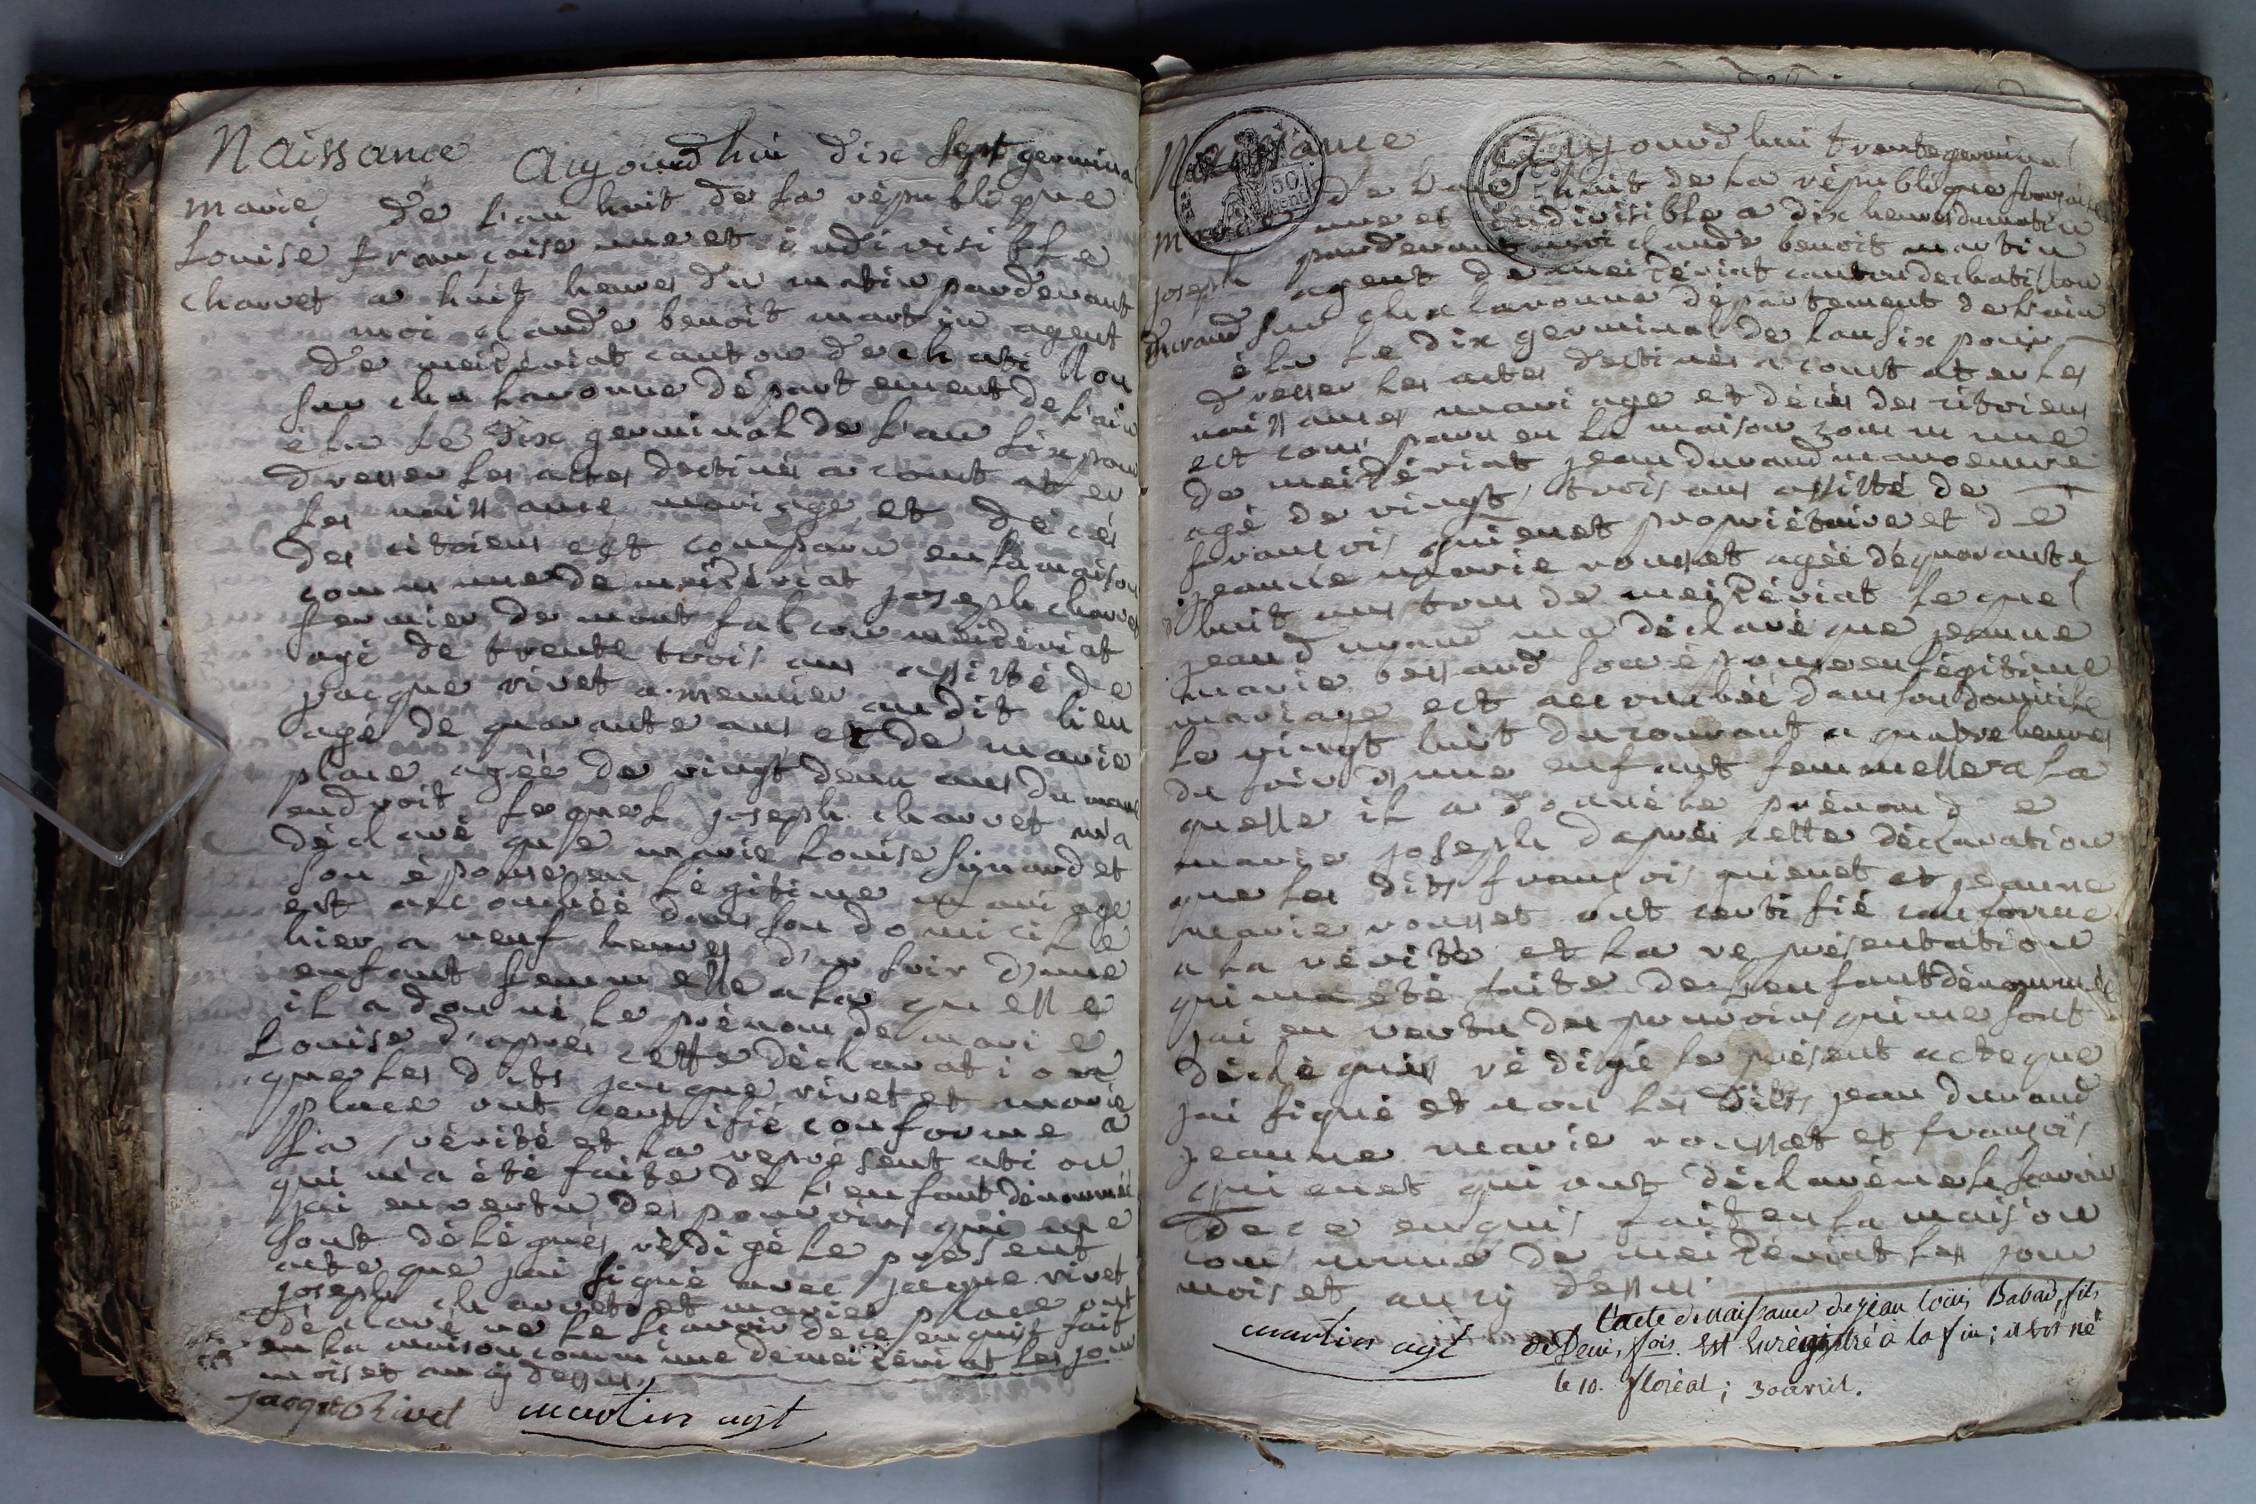 Naissance Aujourd'hui dix sept germinal
marie de l'an huit de la république
Louise françoise une et indivisible
charvet a huit heures du matin pardevant
moi claude benoit martin agent
de meizériat canton de chatillon
sur chalaronne département de l'ain
élu le dix germinal de l'an six pour
dresser les actes destinés a constater
les naissance mariage et décés
des citoiens est comparu en la maison
commune de meizériat joseph charvet
fermier de mont falcon meizériat
agé de trente trois ans assisté de
jacque rivet meunier audit lieu
agé de quarante ans et de marie
place agée de vingt deux ans du meme
endroit lequel joseph charvet m'a
déclaré que marie Louise signardet
son épouse en légitime mariage
est accouchée dans son domicile
hier a neuf heures du soir d'une
enfant femmelle a la quelle
il a donné le prénom de marie
Louise d'apres cette déclaration
que les dits jacque rivet et marie
place ont certifié conforme a
la vérité et la représentation
qui m'a été faite de l'enfant dénommée
jai en vertu des pouvoirs qui me
sont délégués rédigé le present
acte que jai signé avec jacque rivet
joseph charvet et marie place ont
déclaré ne le scavoir de ce enquis fait
en la maison commune de meizériat les jour
mois et an cy dessus.
jacque Rivet martin agt
Naissance Aujourd'hui trente germinal
de l'an huit de la république française
marie une et indivisible a dix heures du matin
joseph pardevant moi claude benoit martin
agent de meizériat canton de chatillon
durand sur chalaronne département de l'ain
élu le dix germinal de l'an six pour
dresser les actes destinés a constater les
naissances mariage et décés des citoiens
est comparu en la maison commune
de meizériat jean durand manoeuvre
agé de vingt trois ans assisté de
françois quienet propriétaire et de
jeanne marie rousset agée de quarante
huit ans tous de meizériat lequel
jean durand m'a déclaré que jeanne
marie bessard son épouse en légitime
mariage est accouchée dans son domicile
le vingt huit du courant a quatre heures
du soir d'une enfant femmelle a la
quelle il a donné le prénom de
marie joseph d'aprés cette déclaration
que les dits françois quienet et jeanne
marie rousset ont certifié conforme
a la vérité et la représentation
qui m'a été faite de l'enfant dénommée
jai en vertu des pouvoirs qui me sont
délégués rédigé le présent acte que
jai signé et non les dits jean durand
jeanne marie rousset et françois
quienet qui ont déclaré ne le scavoir
de ce enquis fait en la maison
commune de meizériat les jour
mois et an cy dessus.
L'acte de naissance de jean Louis Babad, fils
martin agt de Denis, fois est Enrégistré à la fin; il est né
le 10. floréal; 30 avril.